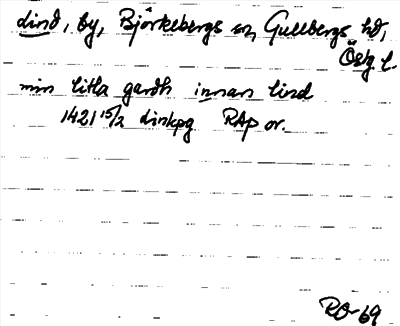 Lind, by, Björkebergs sn, Gullbergs hd,
Östg l.
min litla gardh innan lind
1421 15/2 Linkpg RAp or.
RO-69